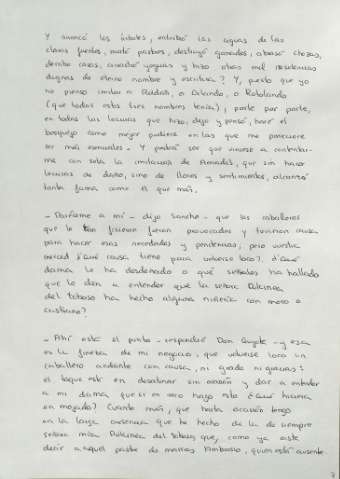 Y arrancó los árboles, enturbió las aguas de las
claras fuentes, mató pastores, destruyó ganados, abrasó chozas,
derribó casas, arrastró yeguas y hizo otras mil insolencias
dignas de eterno nombre y escritura? Y, puesto que yo
no pienso imitar a Roldán, o Orlando, o Rotolando
(que todos estos tres nombres tenía), parte por parte,
en todas las locuras que hizo, dijo y pensó, haré el
bosquejo como mejor pudiere en las que me pareciere
ser más esenciales. Y podrá ser que viniese a contentar-
me con sola la imitación de Amadís, que sin hacer
locuras de daño, sino de lloros y sentimientos, alcanzó
tanta fama como el que más.
- Paréceme a mí - dijo Sancho - que los caballeros
que lo tal ficieron fueron provocados y tuvieron causa
para hacer esas necedades y penitencias; pero vuestra
merced ¿qué causa tiene para volverse loco? ¿Qué
dama le ha desdeñado o qué señales ha hallado
que le den a entender que la señora Dulcinea
del Toboso ha hecho alguna niñería con moro o
cristiano?
- Ahí está el punto - respondió Don Quijote - y esa
es la fineza de mi negocio, que volverse loco un
caballero andante con causa, ni grado ni gracias:
el toque está en desatinar sin ocasión y dar a entender
a mi dama que si en seco hago esto ¿qué hiciera
en mojado? Cuanto más, que harta ocasión tengo
en la larga ausencia que he hecho de la de siempre
señora mía Dulcinea del Toboso que, como ya oíste
decir a aquel pastor de marras Ambrosio, quien está ausente